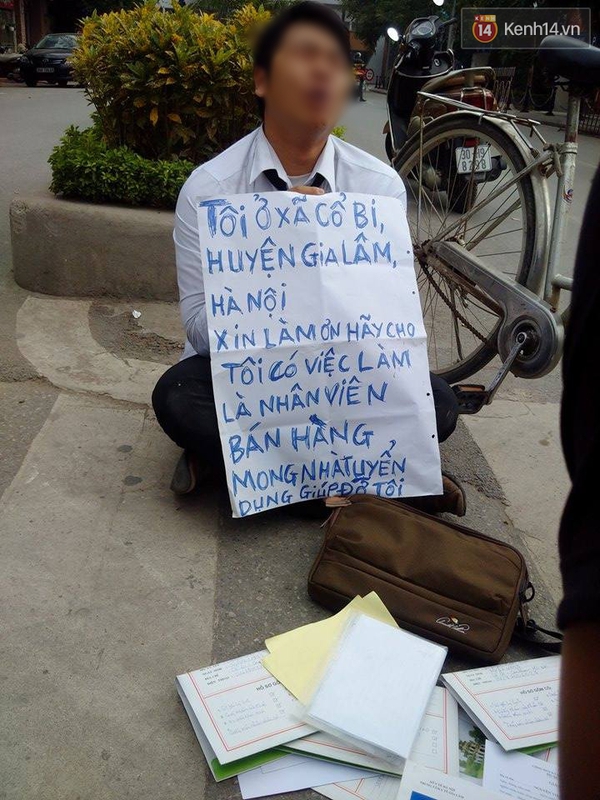 14
Kenh14.vn
TÔI Ở XÃ CỔ BI,
HUYỆN GIA LÂM,
HÀ NỘI
XIN LÀM ƠN HÃY CHO
TÔI CÓ VIỆC LÀM
LÀ NHÂN VIÊN
BÁN HÀNG
MONG NHÀ TUYỂN
DỤNG GIÚP ĐỠ TÔI